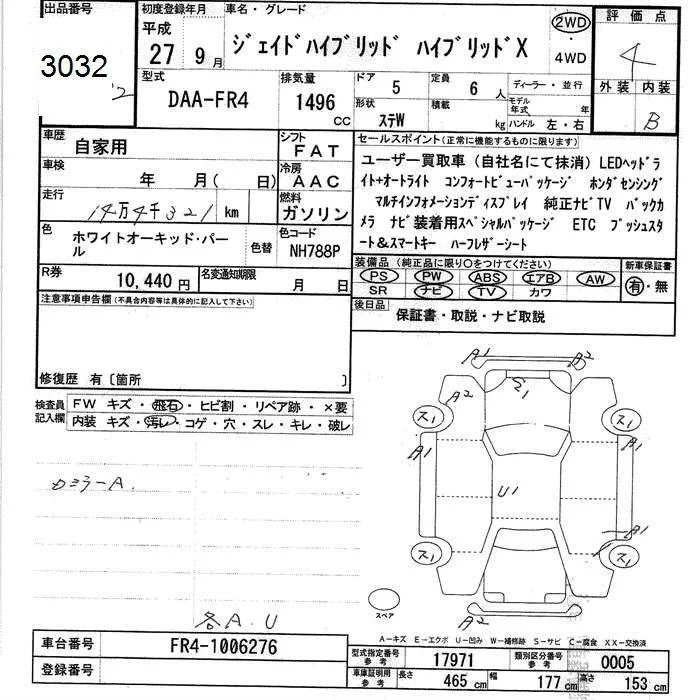 出品番号
3032
'2
初度登録年月
平成
27 9月
車名・グレード
ジェイドハイブリッド ハイブリッドX
2WD
・
4WD
評価点
4
外装 内装
B
型式
DAA-FR4
排気量
1496
CC
ドア
5
定員
6人
形状
ステW
積載
kg
ディーラー・並行
モデル年式
年
ハンドル 左・右
車歴
自家用
シフト
FAT
車検
年 月( 日)
冷房
AAC
走行
14万4千321 km
燃料
ガソリン
色
ホワイトオーキッド・パール
色替
色コード
NH788P
R券
10,440円
名変通知期限
月 日
セールスポイント(正常に機能するものに限ります)
ユーザー買取車(自社名にて抹消)LEDヘッドラ
イト+オートライト コンフォートビューパッケージ ホンダセンシング
マルチインフォメーションディスプレイ 純正ナビTV バックカ
メラ ナビ装着用スペシャルパッケージ ETC プッシュスタ
ート&スマートキー ハーフレザーシート
装備品(純正品に限り○をつけてください)
PS PW ABS エアB AW
SR ナビ TV カワ
新車保証書
有・無
後日品
保証書・取説・ナビ取説
注意事項申告欄(不具合内容等は具体的に記入して下さい)
修復歴 有〔箇所 〕
検査員
記入欄
FW キズ・飛石・ヒビ割・リペア跡・×要
内装 キズ・汚レ・コゲ・穴・スレ・キレ・破レ
カミラーA.
各A.U
A1
A2
A2
ス1
ス1
A1
A1
U1
A1
ス1
ス1
A2
スペア
A-キズ E-エクボ U-凹み W-補修跡 S-サビ C-腐食 XX-交換済
車台番号
FR4-1006276
登録番号
型式指定番号
参考
17971
類別区分番号
参考
0005
車庫証明用
参考
長さ
465 cm
幅
177 cm
高さ
153 cm